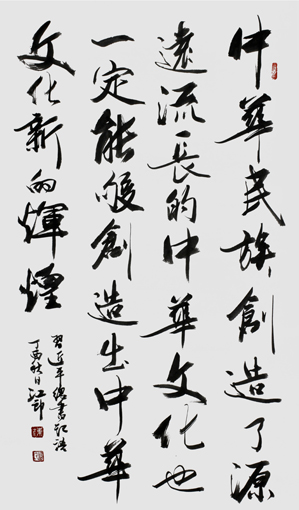 中華民族創造了源
遠流長的中華文化也
一定能够創造出中華
文化新的輝煌
習近平總書記語
丁酉秋日